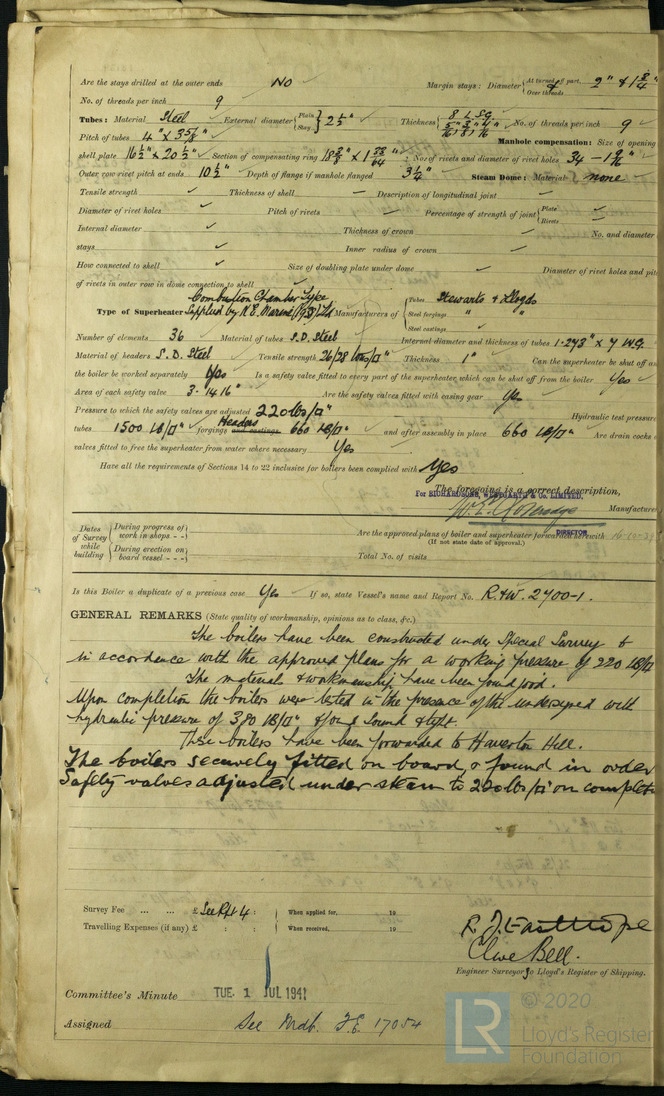 Are the stays drilled at the outer ends No Margin stays: Diameter { At turned off part, 2" & 1 3/4" Over threads
No. of threads per inch 9
Tubes: Material Steel External diameter { Plain Stay } 2 1/2" Thickness { 8 L.S.G. 5/16", 3/8", 7/16" No. of threads per inch 9
Pitch of tubes 4" x 3 5/8" Manhole compensation: Size of opening
shell plate 16 1/2" x 20 1/2" Section of compensating ring No. of rivets and diameter of rivet holes 34 - 1 9/16"
Outer row rivet pitch at ends 10 1/2" Depth of flange if manhole flanged 3 1/4" Steam Dome: Material none
Tensile strength Thickness of shell Description of longitudinal joint
Diameter of rivet holes Pitch of rivets Percentage of strength of joint { Plate Rivets
Internal diameter Thickness of crown No. and diameter
stays Inner radius of crown
How connected to shell Size of doubling plate under dome Diameter of rivet holes and pitc
of rivets in outer row in dome connection to shell
Combustion Chamber Type
Type of Superheater Supplied by N.E. Marine (1938) Ltd Manufacturers of { Tubes Stewarts & Lloyds Steel forgings " " Steel castings
Number of elements 36 Material of tubes S.D. Steel Internal diameter and thickness of tubes 1.243" x 7 W.G.
Material of headers S.D. Steel Tensile strength 26/28 tons/□" Thickness 1" Can the superheater be shut off an
the boiler be worked separately Yes Is a safety valve fitted to every part of the superheater which can be shut off from the boiler Yes
Area of each safety valve 3.1416" Are the safety valves fitted with easing gear Yes
Pressure to which the safety valves are adjusted 220 lbs/□" Hydraulic test pressure
tubes 1500 lB/□" forgings and castings Headers 660 lB/□" and after assembly in place 660 lB/□" Are drain cocks o
valves fitted to free the superheater from water where necessary Yes
Have all the requirements of Sections 14 to 22 inclusive for boilers been complied with Yes
The foregoing is a correct description,
For RICHARDSONS, WESTGARTH & Co. LIMITED,
Manufacturer
DIRECTOR
Dates of Survey while building { During progress of work in shops - - During erection on board vessel - - -
Are the approved plans of boiler and superheater forwarded herewith 16-10-39
(If not state date of approval.)
Total No. of visits
Is this Boiler a duplicate of a previous case Yes If so, state Vessel's name and Report No. R&W. 2700-1.
GENERAL REMARKS (State quality of workmanship, opinions as to class, &c.)
The boilers have been constructed under Special Survey &
in accordance with the approved plans for a working pressure of 220 lB/□"
The material & workmanship have been found good.
Upon completion the boilers were tested in the presence of the undersigned with
hydraulic pressure of 380 lB/□" & found sound & tight.
These boilers have been forwarded to Haverton Hill.
The boilers securely fitted on board, & found in order
Safety valves adjusted under steam to 220 lbs/□" on completi
Survey Fee ... ... £ See Rpt 4 : When applied for, 19
Travelling Expenses (if any) £ : : When received, 19
R. J. Easthope
Clive Bell.
Engineer Surveyors to Lloyd's Register of Shipping.
Committee's Minute TUE. 1 JUL 1941
Assigned See F.E. 17054
LR © 2020
Lloyd's Register
Foundation